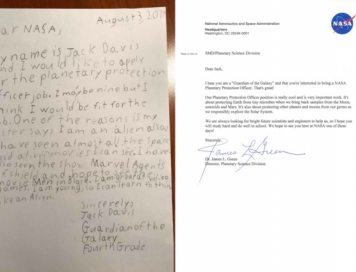 August 3, 201
ear NASA,
y name is Jack Davis
nd I would like to apple
r the planetary protection
officer job. I may be nine but I
hink I would be fit for the
ob. One of the reasons is my
ister says I am an alien also
have seen almost all the space
nd alien movies I can see.
so seen the show Marvel Agents
f Shield and hope to see the
movie Men in Black. I am
games. I am young, so I can learn to think
like an Alien.
Sincerely,
Jack Davis
Guardian of the
Galaxy
Fourth Grade
National Aeronautics and Space Administration
Headquarters
Washington, DC 20546-0001
NASA
SMD/Planetary Science Division
Dear Jack,
I hear you are a "Guardian of the Galaxy" and that you're interested in being a NASA
Planetary Protection Officer. That's great!
Our Planetary Protection Officer position is really cool and is very important work. It's
about protecting Earth from tiny microbes when we bring back samples from the Moon,
asteroids and Mars. It's also about protecting other planets and moons from our germs as
we responsibly explore the Solar System.
We are always looking for bright future scientists and engineers to help us, so I hope you
will study hard and do well in school. We hope to see you here at NASA one of these
days!
Sincerely,
James L Green
Dr. James L. Green
Director, Planetary Science Division